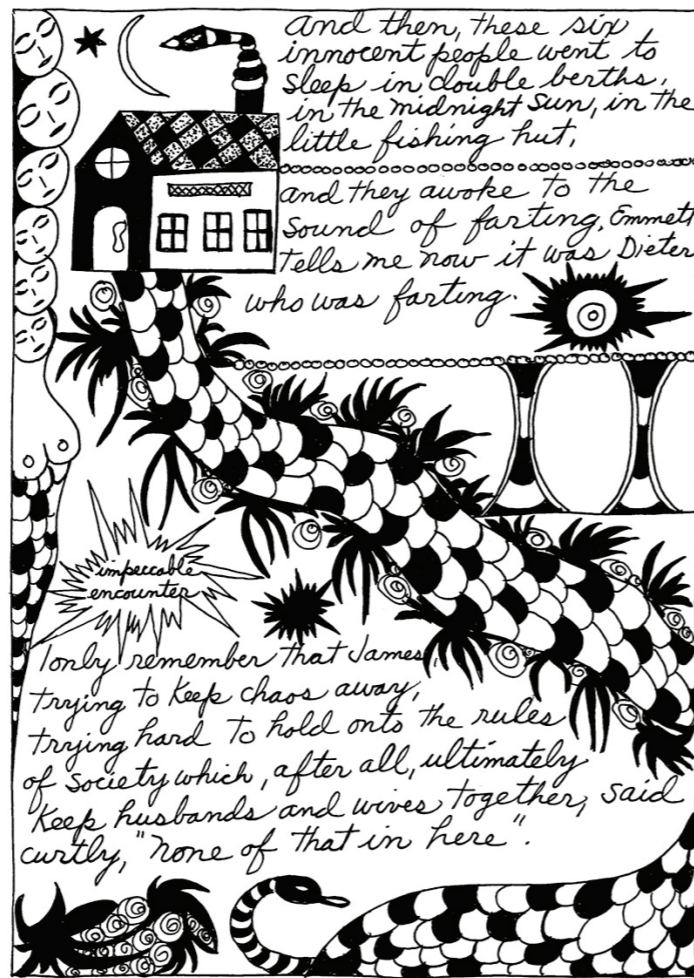 and then, these six
innocent people went to
sleep in double berths,
in the midnight sun, in the
little fishing hut,
and they awoke to the
sound of farting. Emmett
tells me now it was Dieter
who was farting.
impeccable
encounter
I only remember that James,
trying to keep chaos away,
trying hard to hold onto the rules
of society which, after all, ultimately
keep husbands and wives together, said
curtly, "none of that in here".